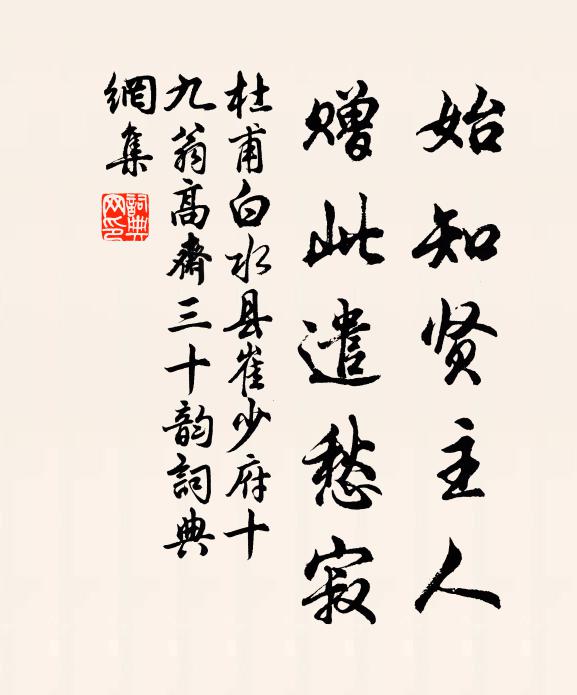 始知贤主人
赠此遣愁寂
杜甫白水县崔少府十
九翁高齋三十韵詞典
網集
詞典網印